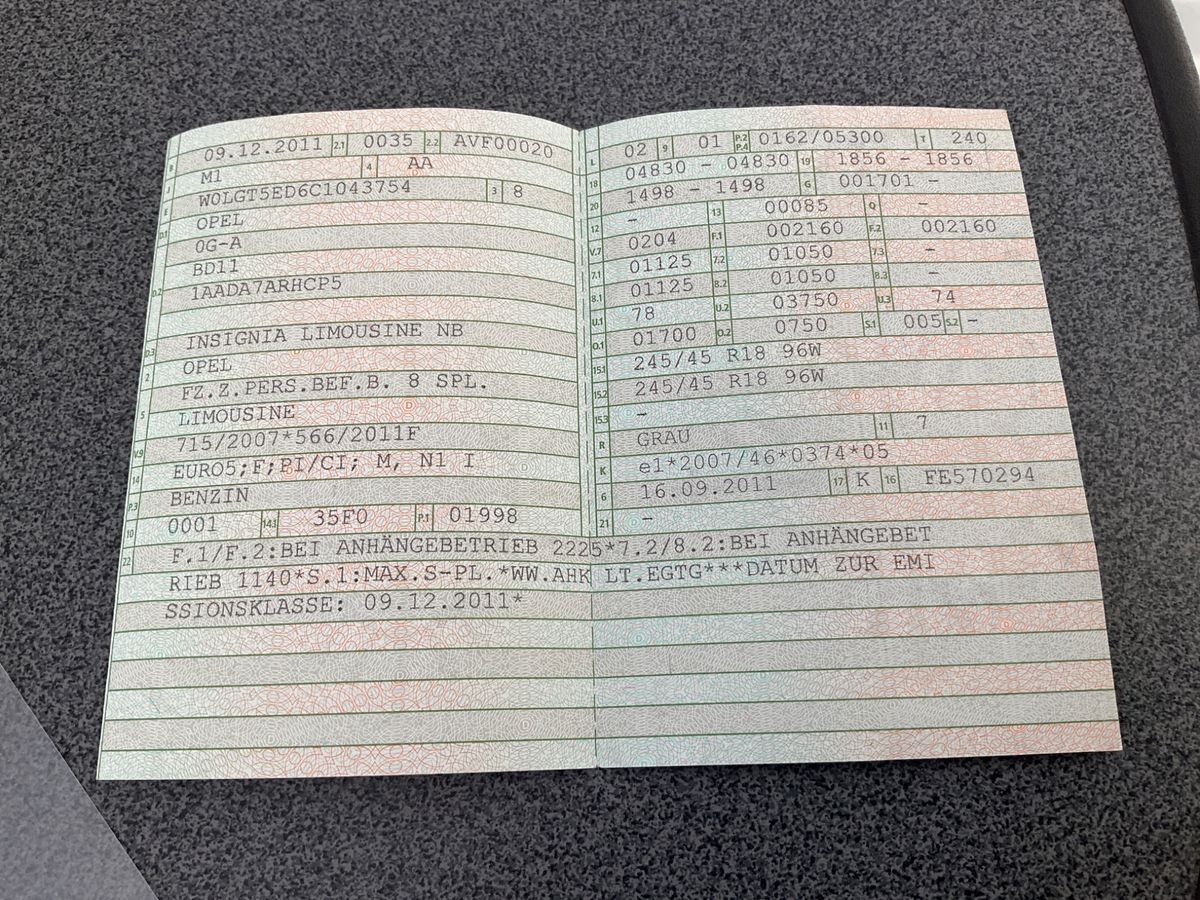 B 09.12.2011 2.1 0035 2.2 AVF00020
J M1 4 AA
E W0LGT5ED6C1043754 3 8
D.1 OPEL
0G-A
D.2 BD11
1AADA7ARHCP5
D.3 INSIGNIA LIMOUSINE NB
2 OPEL
5 FZ.Z.PERS.BEF.B. 8 SPL.
LIMOUSINE
V.9 715/2007*566/2011F
14 EURO5;F;PI/CI; M, N1 I
P.3 BENZIN
10 0001 14.1 35F0 P.1 01998
L 02 9 01 P.2 P.4 0162/05300 T 240
18 04830 - 04830 19 1856 - 1856
20 1498 - 1498 G 001701 -
12 - 13 00085 Q -
V.7 0204 F.1 002160 F.2 002160
7.1 01125 7.2 01050 7.3 -
8.1 01125 8.2 01050 8.3 -
U.1 78 U.2 03750 U.3 74
O.1 01700 O.2 0750 S.1 005 S.2 -
15.1 245/45 R18 96W
15.2 245/45 R18 96W
15.3 -
R GRAU 11 7
K e1*2007/46*0374*05
6 16.09.2011 17 K 16 FE570294
21 -
22 F.1/F.2:BEI ANHÄNGEBETRIEB 2225*7.2/8.2:BEI ANHÄNGEBET
RIEB 1140*S.1:MAX.S-PL.*WW.AHK LT.EGTG***DATUM ZUR EMI
SSIONSKLASSE: 09.12.2011*